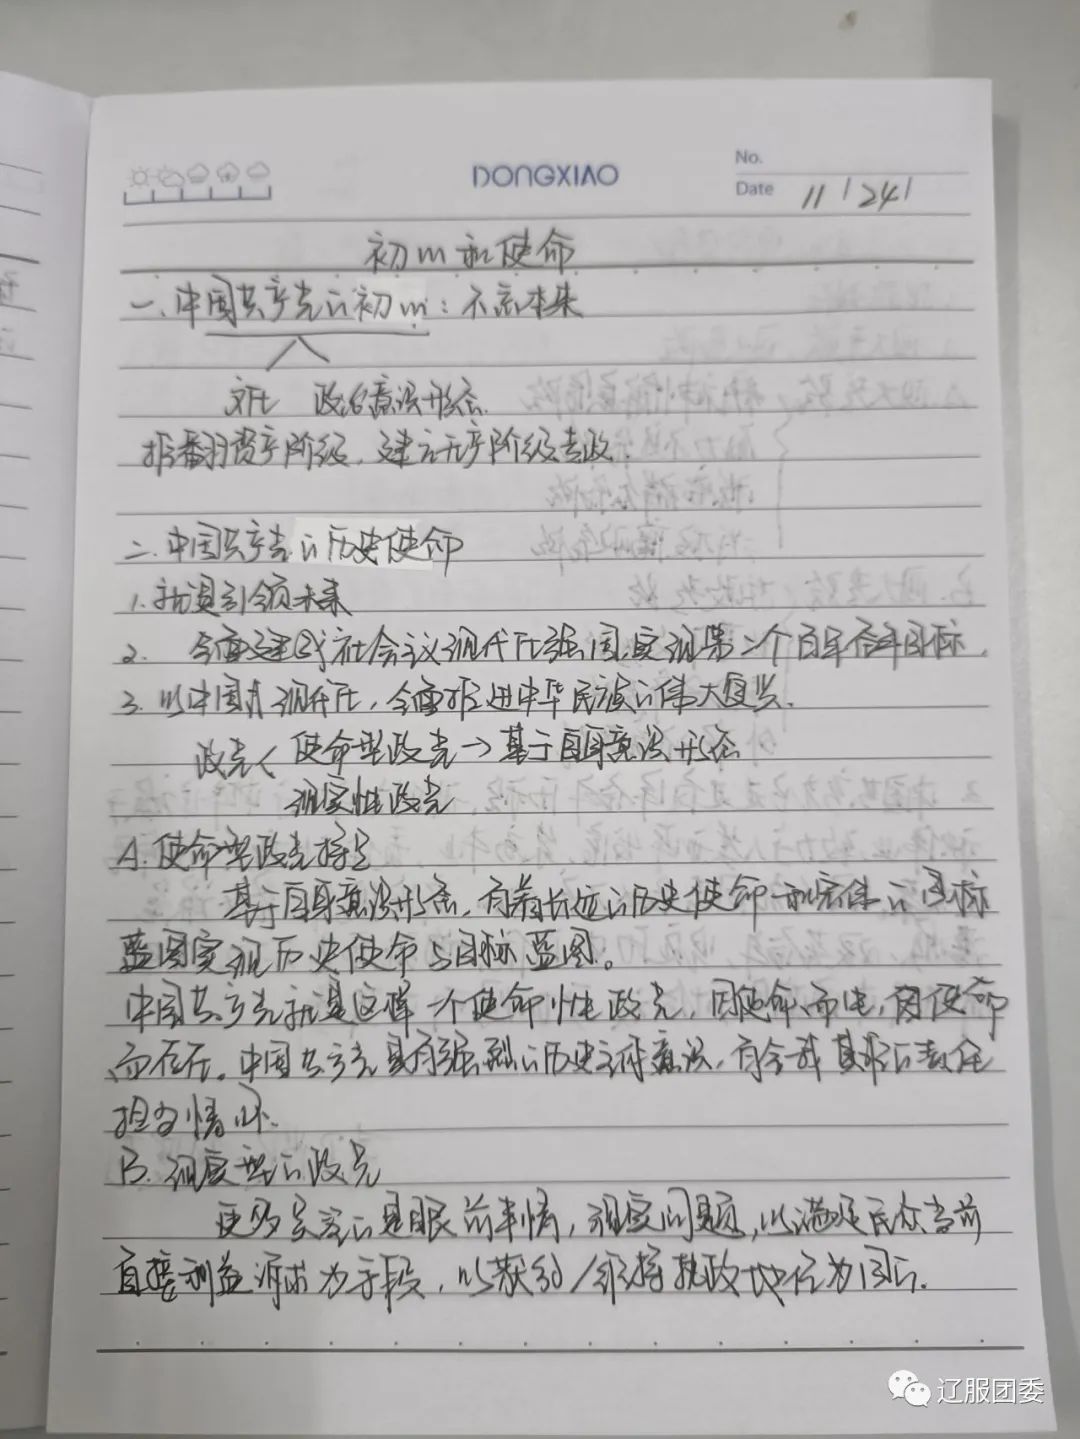 DONGXIAO
No.
Date 11 / 24 /
初心和使命
一、中国共产党的初心：不忘本来
文化 政治意识形态
推翻资产阶级，建立无产阶级专政.
二、中国共产党的历史使命
1. 就是引领未来
2. 全面建成社会主义现代化强国，实现第二个百年奋斗目标.
3. 以中国式现代化，全面推进中华民族的伟大复兴.
政党〈 使命型政党→基于自身意识形态
现实性政党
A. 使命型政党
基于自身意识形态，有着长远的历史使命和宏伟的目标
蓝图实现历史使命与目标蓝图。
中国共产党就是这样一个使命性政党，因使命而生，因使命
而存在。中国共产党具有强烈的历史主体意识，有舍我其谁的责任
担当情怀.
B. 现实型的政党
更多在意的是眼前事情，现实问题，以满足民众当前
直接利益诉求为手段，以获得/维持执政地位为目的.
辽服团委